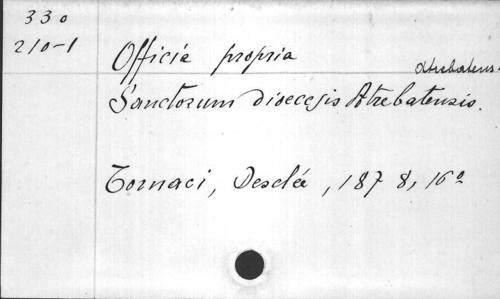 330
210-1
Officia propria
Atrebatens.
Sanctorum dioecesis Atrebatensis.
Tornaci, Desclée, 1878, 16º